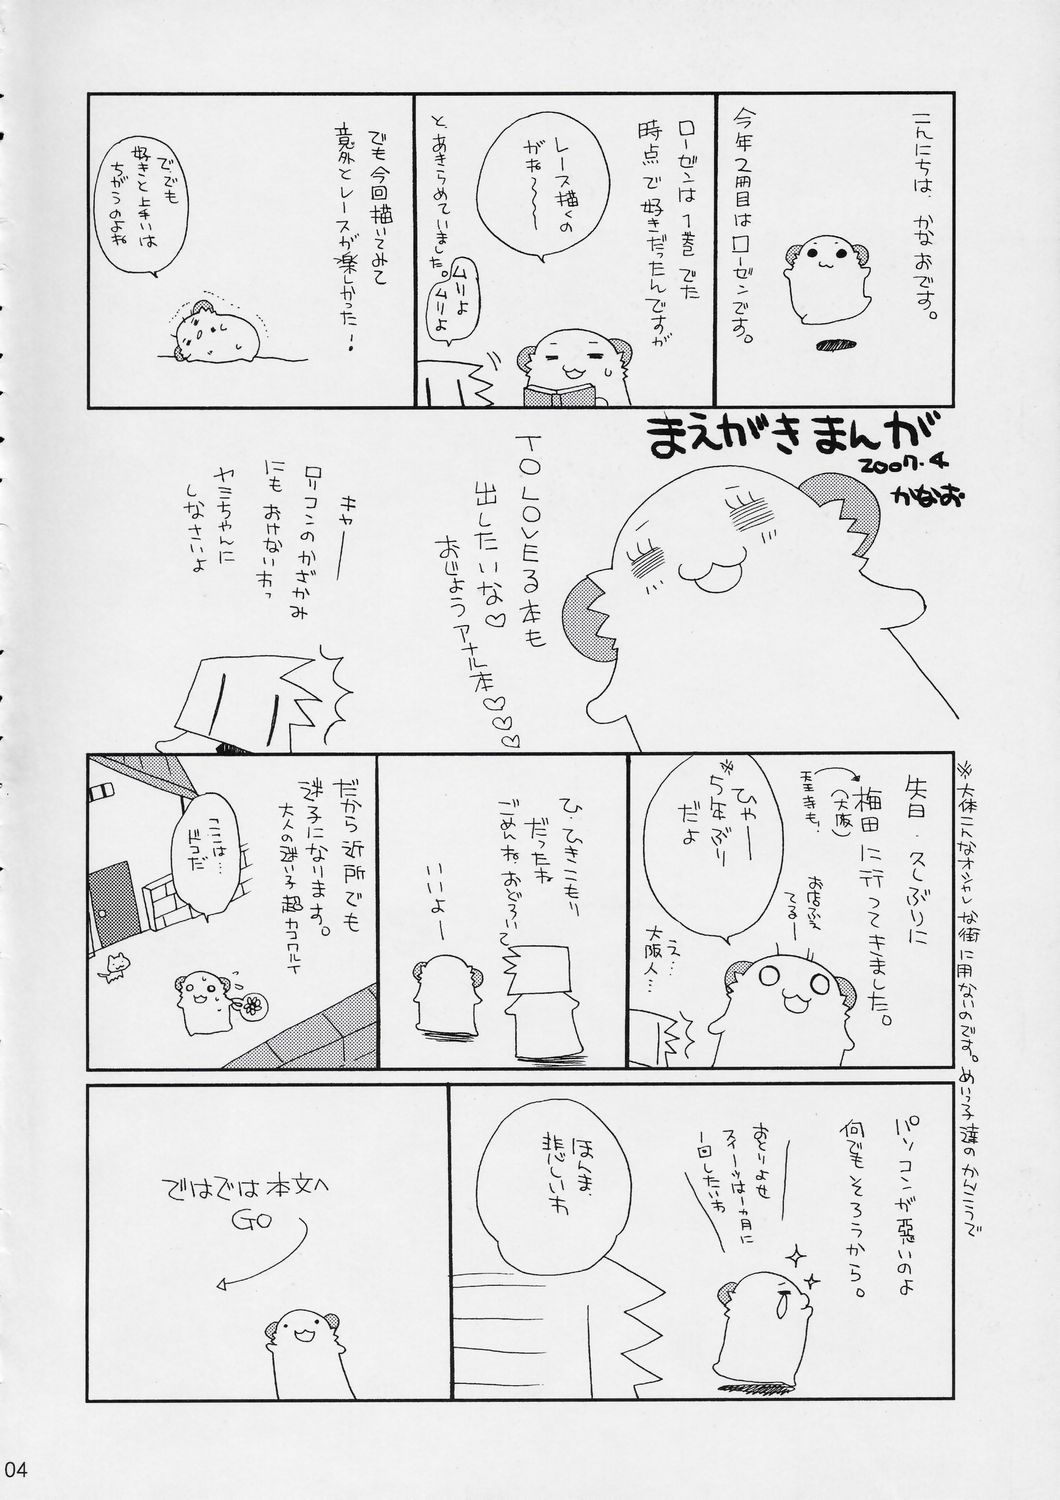 まえがきまんが
2007.4
かなお
こんにちは、かなおです。
今年2冊目はローゼンです。
ローゼンは1巻でた
時点で好きだったんですが
レース描くの
がね〜〜〜
と、あきらめていました。
ムリよ
ムリよ
でも今回描いてみて
意外とレースが楽しかった!
で、でも
好きと上手いは
ちがうのよね
TO LOVEる本も
出したいな♡
おじょうアナル本♡♡♡
キャーー
ロリコンのかざかみ
にもおけないわっ
ヤミちゃんに
しなさいよ
先日、久しぶりに
梅田に行ってきました。
(大阪)
お店ふえ
てるー
ひゃー
※5年ぶり
だよ
え…
大阪人…
※大体こんなオシャレな街に用ないのです。めいっ子達のかんこうで
ひ、ひきこもり
だったね
ごめんねおどろいて
いいよー
だから近所でも
迷子になります。
大人の迷い子超カコワルイ
ここは…
ドコだ
パソコンが悪いのよ
何でもそろうから。
おとりよせ
スイーツは1ヵ月に
一回したいわ
ほんま、
悲しいわ
ではでは本文へ
GO
04